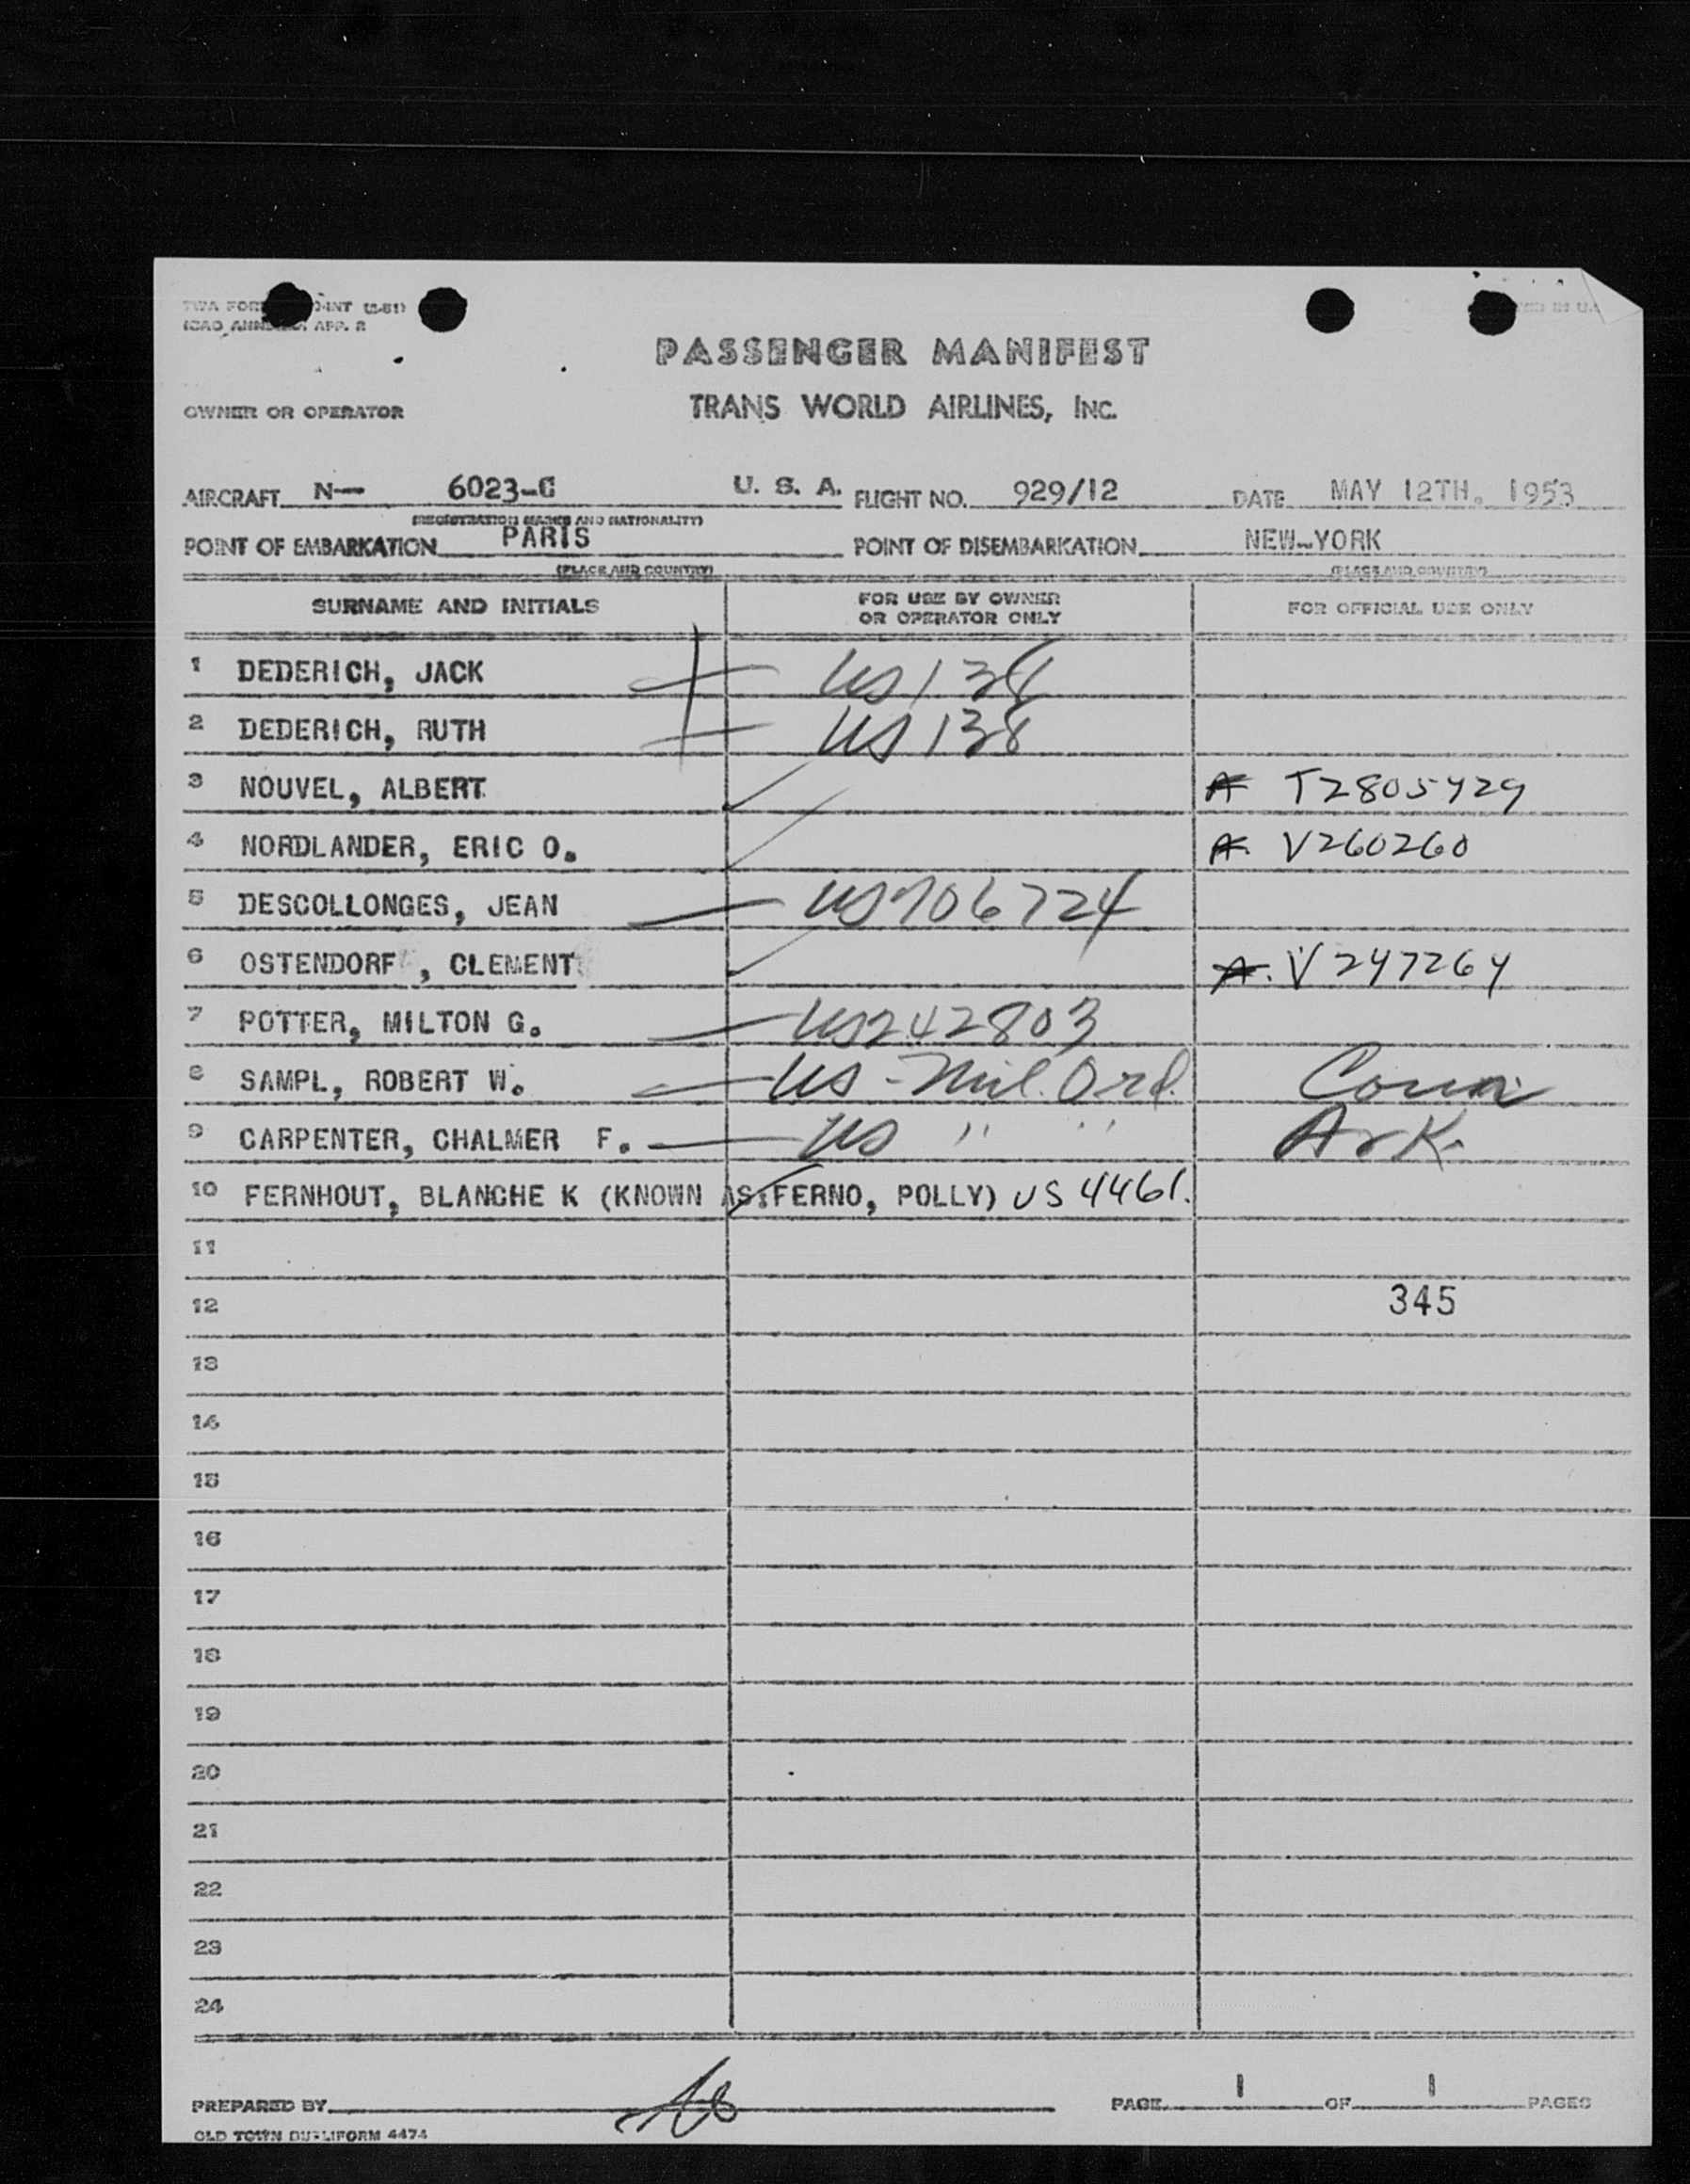 PASSENGER MANIFEST
OWNER OR OPERATOR TRANS WORLD AIRLINES, INC.
AIRCRAFT N— 6023-C U. S. A. FLIGHT NO. 929/12 DATE MAY 12TH. 1953
(REGISTRATION MARKS AND NATIONALITY)
POINT OF EMBARKATION PARIS POINT OF DISEMBARKATION NEW-YORK
(PLACE AND COUNTRY) (PLACE AND COUNTRY)
SURNAME AND INITIALS FOR USE BY OWNER OR OPERATOR ONLY FOR OFFICIAL USE ONLY
1 DEDERICH, JACK US 138
2 DEDERICH, RUTH US 138
3 NOUVEL, ALBERT A T2805429
4 NORDLANDER, ERIC O. A. V260260
5 DESCOLLONGES, JEAN US706724
6 OSTENDORF , CLEMENT A. V247264
7 POTTER, MILTON G. US242803
8 SAMPL, ROBERT W. US - Mil. Ord. Conn
9 CARPENTER, CHALMER F. US " " Ark.
10 FERNHOUT, BLANCHE K (KNOWN AS:FERNO, POLLY) US 4461.
11
12 345
13
14
15
16
17
18
19
20
21
22
23
24
PREPARED BY PAGE 1 OF 1 PAGES
OLD TOWN DUPLIFORM 4474